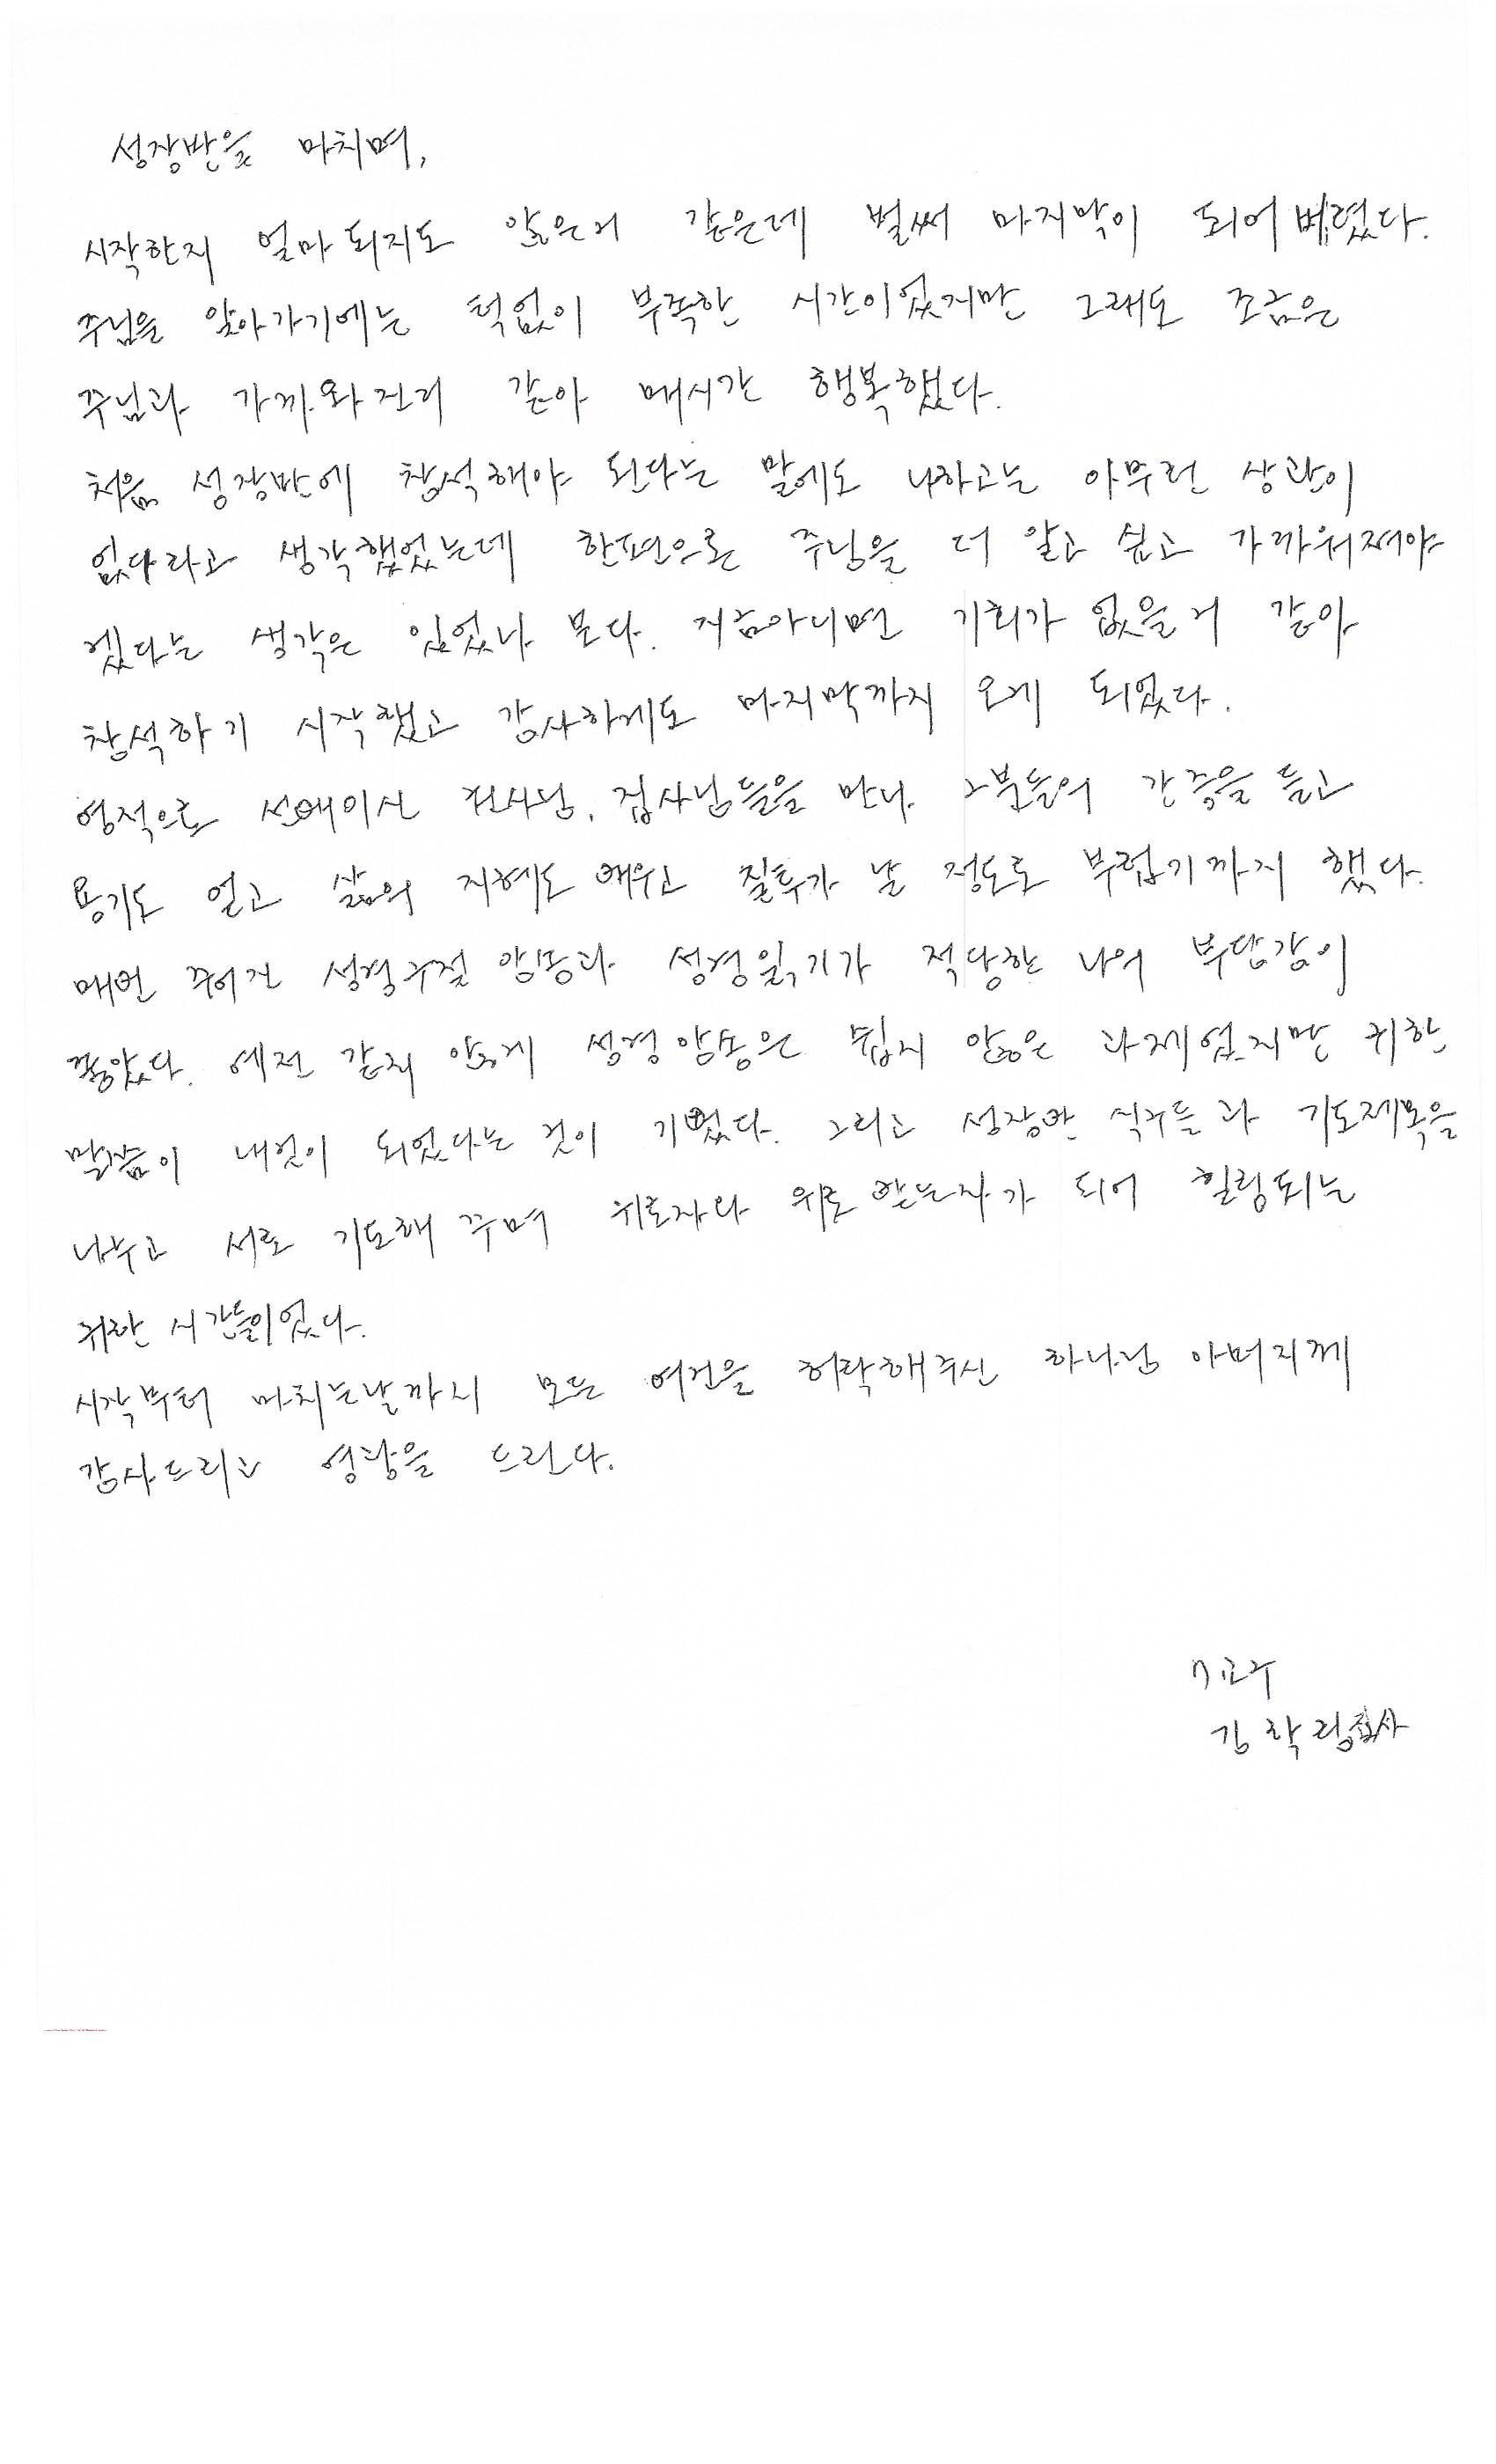 성장반을 마치며,
시작한지 얼마 되지도 않은거 같은데 벌써 마지막이 되어 버렸다.
주님을 알아가기에는 턱없이 부족한 시간이었지만 그래도 조금은
주님과 가까와진거 같아 매시간 행복했다.
처음 성장반에 참석해야 된다는 말에도 나하고는 아무런 상관이
없다라고 생각했었는데 한편으로 주님을 더 알고 싶고 가까워져야
겠다는 생각은 있었나 보다. 지금아니면 기회가 없을거 같아
참석하기 시작했고 감사하게도 마지막까지 오게 되었다.
영적으로 선배이신 권사님, 집사님들을 만나 그분들의 간증을 듣고
용기도 얻고 삶의 지혜도 배우고 질투가 날 정도로 부럽기까지 했다.
매번 주어진 성경구절 암송과 성경읽기가 적당한 나의 부담감이
좋았다. 예전 같지 않게 성경암송은 쉽지 않은 과제였지만 귀한
말씀이 내것이 되었다는 것이 기뻤다. 그리고 성장반 식구들과 기도제목을
나누고 서로 기도해 주며 위로자나 위로 받는자가 되어 힐링되는
귀한 시간들이었다.
시작부터 마치는날까지 모든 여건을 허락해주신 하나님 아버지께
감사드리고 영광을 드린다.
7교구
김 락 집사